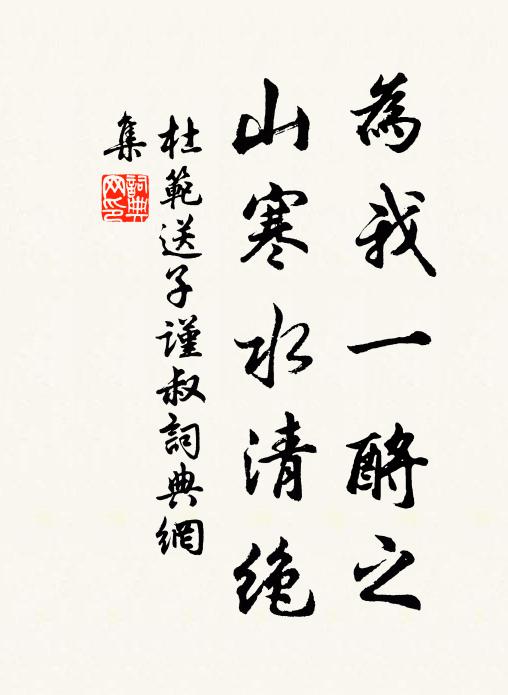 為我一酹之
山寒水清绝
杜範送子謹叔詞典網
集
詞典
网印